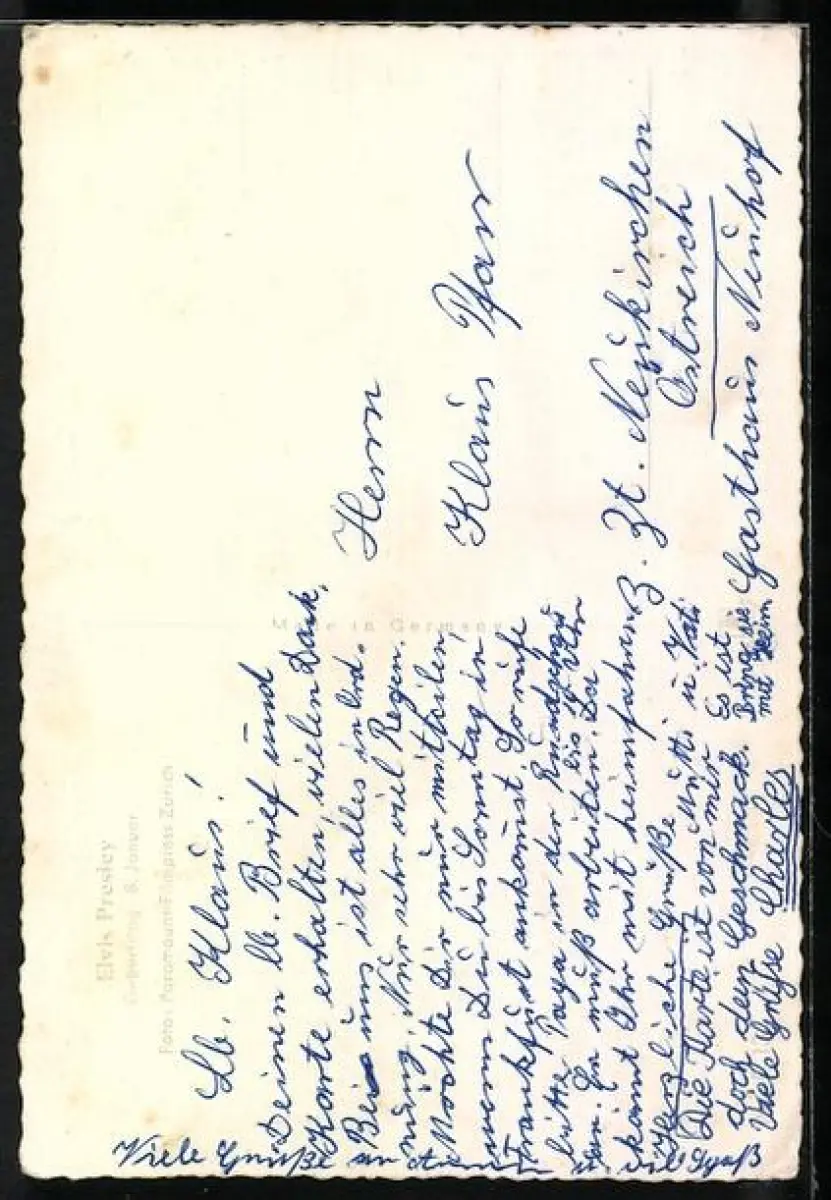 Elvis Presley
Geburtstag 8. Januar
Foto: Paramount-Filmpress Zürich
Made in Germany
Lb. Klaus!
Deinen lb. Brief und
Karte erhalten, vielen Dank,
Bei uns ist alles in Ord.
nung. Nur sehr viel Regen.
Möchte Dir nur mitteilen,
wenn Du bis Sonntag in
Frankfurt ankomst. So rufe
bitte Papa in der Rundschau
an. Er muß arbeiten. bis 10 Uhr Da
kännt Ihr mit heimfahren.
Herzliche Grüße Mutti u. Vati
Die Karte ist von mir Es ist
doch dein Geschmack. Bring sie
mit heim
Viele Grüße Charles
Viele Grüße an u. viel Spaß
Herrn
Klaus Pfarr
z. Zt. Neukirchen
Östreich
Gasthaus Neuhof